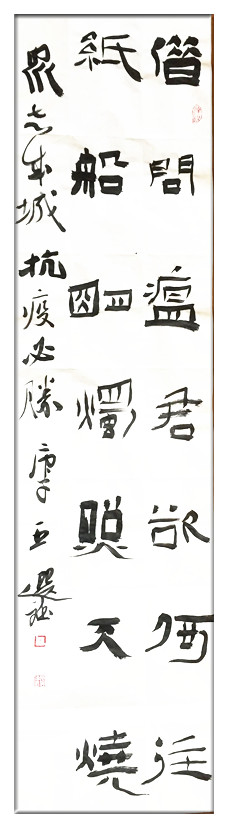 借問瘟君欲何往
紙船朙燭照天燒
眾志成城 抗疫必勝 庚子